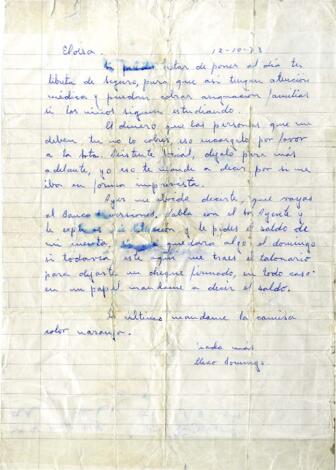 Eloisa. 12-10-73
tratar de poner al día tu
libreta de seguro, para que asi tengan atención
médica y puedan cobrar asignación familiar
si los niños siguen estudiando.
El dinero que las personas que me
deben, tu no lo cobres, eso encargalo por favor
a la Sota. Asistente Social, dejalo para más
adelante, yo eso te mande a decir por si me
iba en forma imprevista.
Ayer me olvidé decirte, que vayas
al Banco habla con el Sr Agente y
le explicas la situación y le pides el saldo de
mi cuenta, que daria algo, el domingo
si todavía esté aquí me traes el talonario
para dejarte un cheque firmado, en todo caso
en un papel mandame a decir el saldo.
Lo ultimo mandame la camisa
color naranjo.
nada más
Domingo